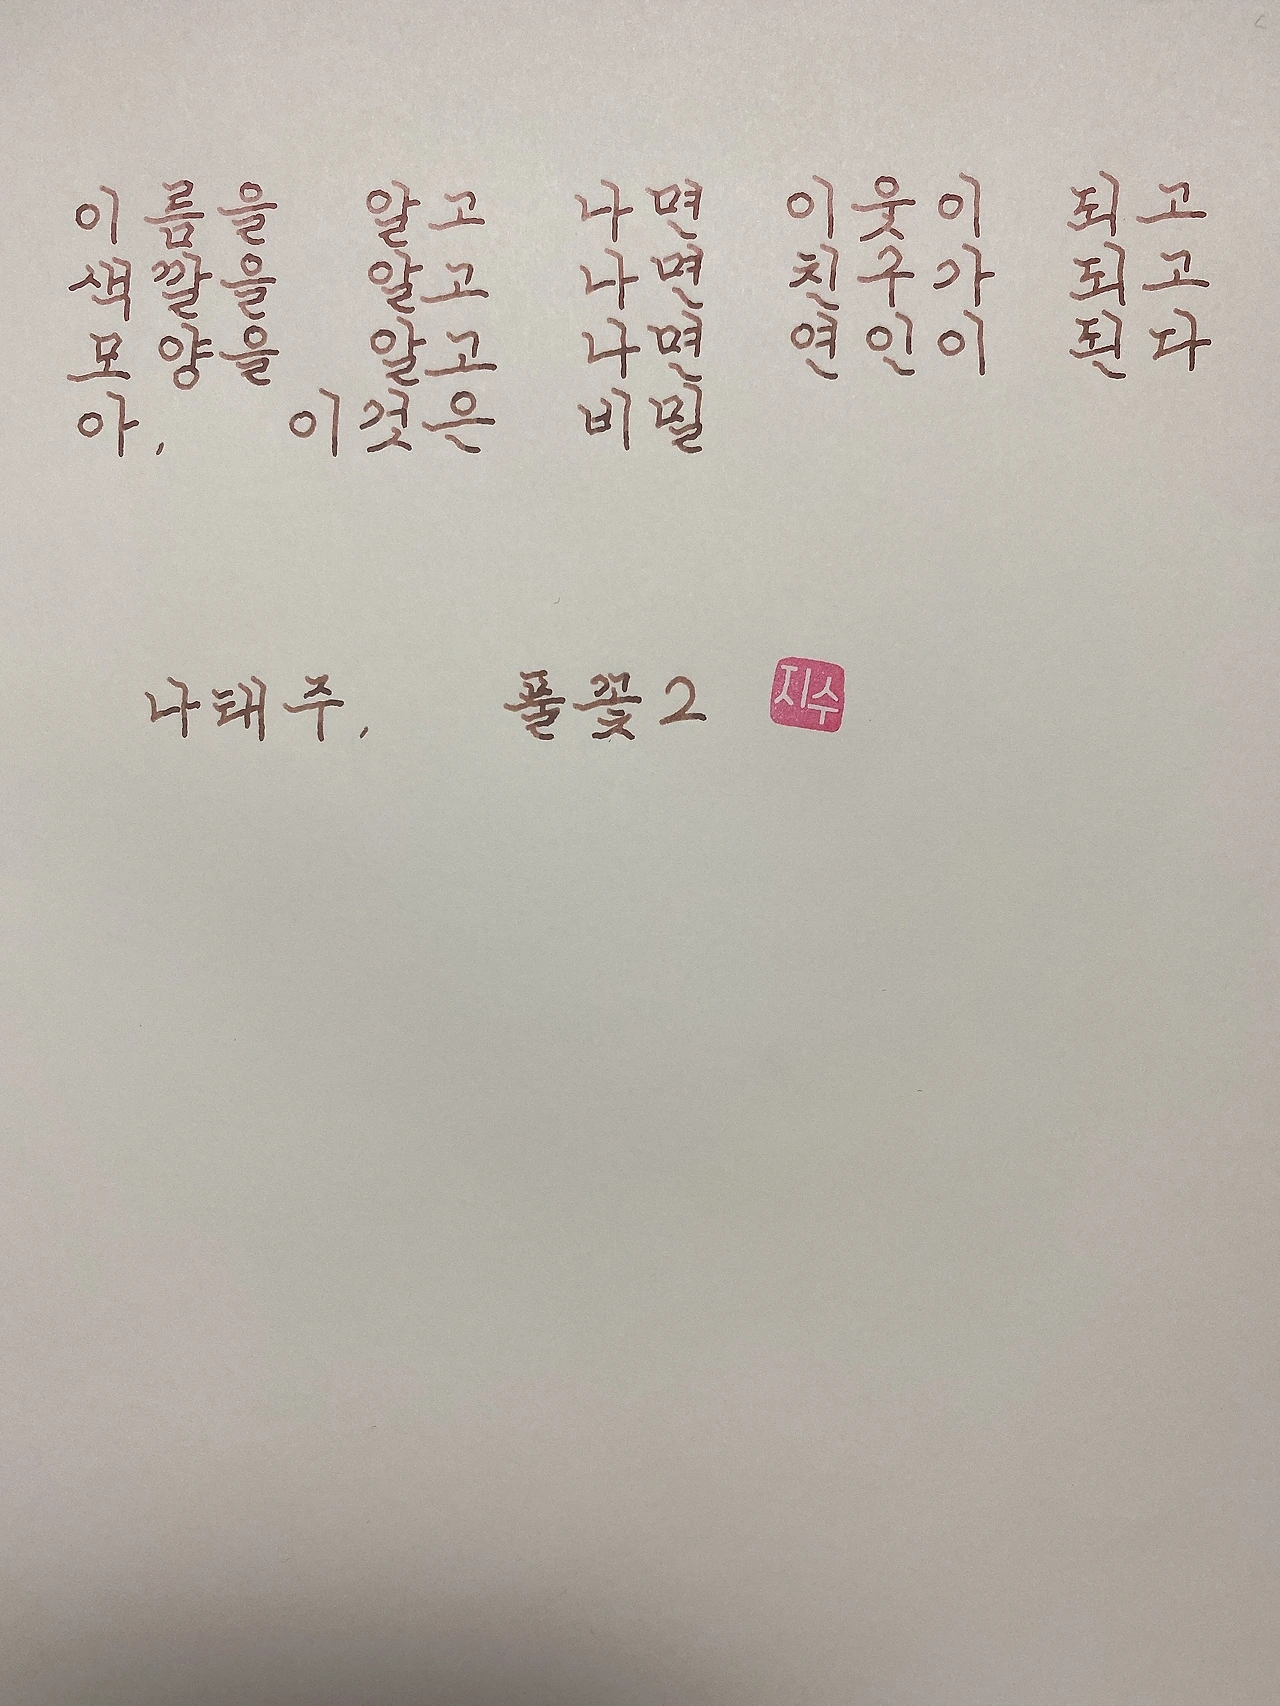 이름을 알고 나면 이웃이 되고
색깔을 알고 나면 친구가 되고
모양을 알고 나면 연인이 된다
아, 이것은 비밀
나태주, 풀꽃2 지수